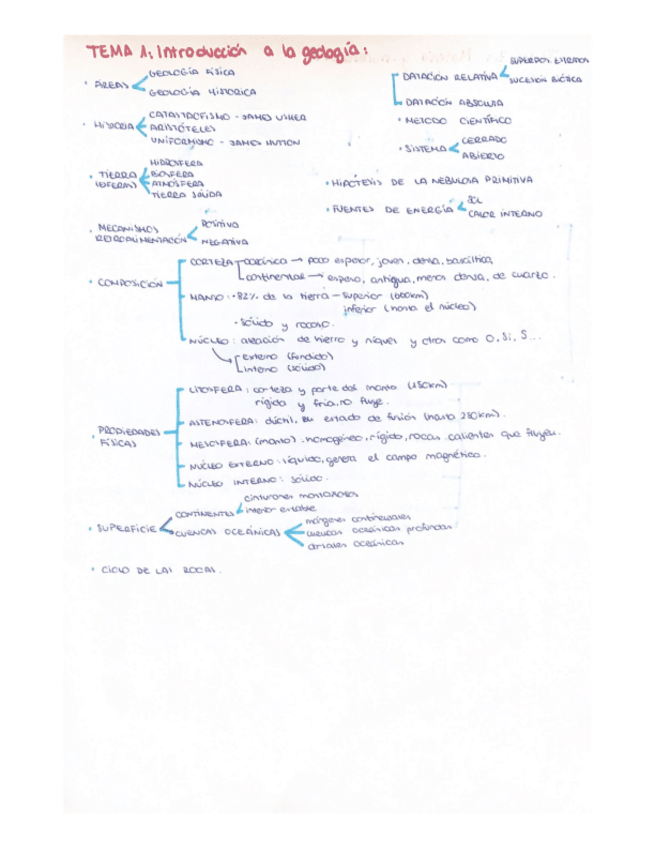 TEMA 1: Introducción a la geología:
· ÁREAS
GEOLOGÍA FÍSICA
GEOLOGÍA HISTORICA
· HISTORIA
CATASTROFISMO - JAMES USHER
ARISTÓTELES
UNIFORMISMO - JAMES HUTTON
· TIERRA (ESFERAS)
HIDROSFERA
BIOSFERA
ATMÓSFERA
TIERRA SÓLIDA
· MECANISMOS RETROALIMENTACIÓN
POSITIVA
NEGATIVA
DATACIÓN RELATIVA
SUPERPOS ESTRATOS
SUCESION BIÓTICA
DATACIÓN ABSOLUTA
· METODO CIENTÍFICO
· SISTEMA
CERRADO
ABIERTO
· HIPÓTESIS DE LA NEBULOSA PRIMITIVA
· FUENTES DE ENERGÍA
SOL
CALOR INTERNO
· COMPOSICIÓN
CORTEZA
oceánica → poco espesor, joven, densa, basáltica,
continental → espeso, antigua, menos densa, de cuarzo.
MANTO: · 82% de la tierra - superior (660km)
inferior (hasta el núcleo)
· Sólido y rocoso.
NÚCLEO: aleación de hierro y níquel y otros como O, Si, S...
externo (fundido)
interno (sólido)
· PROPIEDADES FÍSICAS
LITOSFERA: corteza y parte del manto (150km)
rígida y fría, no fluye.
ASTENOSFERA: dúctil, en estado de fusión (hasta 250km).
MESOSFERA: (manto). homogéneo, rígido, rocas calientes que fluyen.
NÚCLEO EXTERNO: líquido, genera el campo magnético.
NÚCLEO INTERNO: sólido.
· SUPERFICIE
CONTINENTES
cinturones montañosos
interior estable
CUENCAS OCEÁNICAS
márgenes continentales
cuencas oceánicas profundas
dorsales oceánicas
· CICLO DE LAS ROCAS.